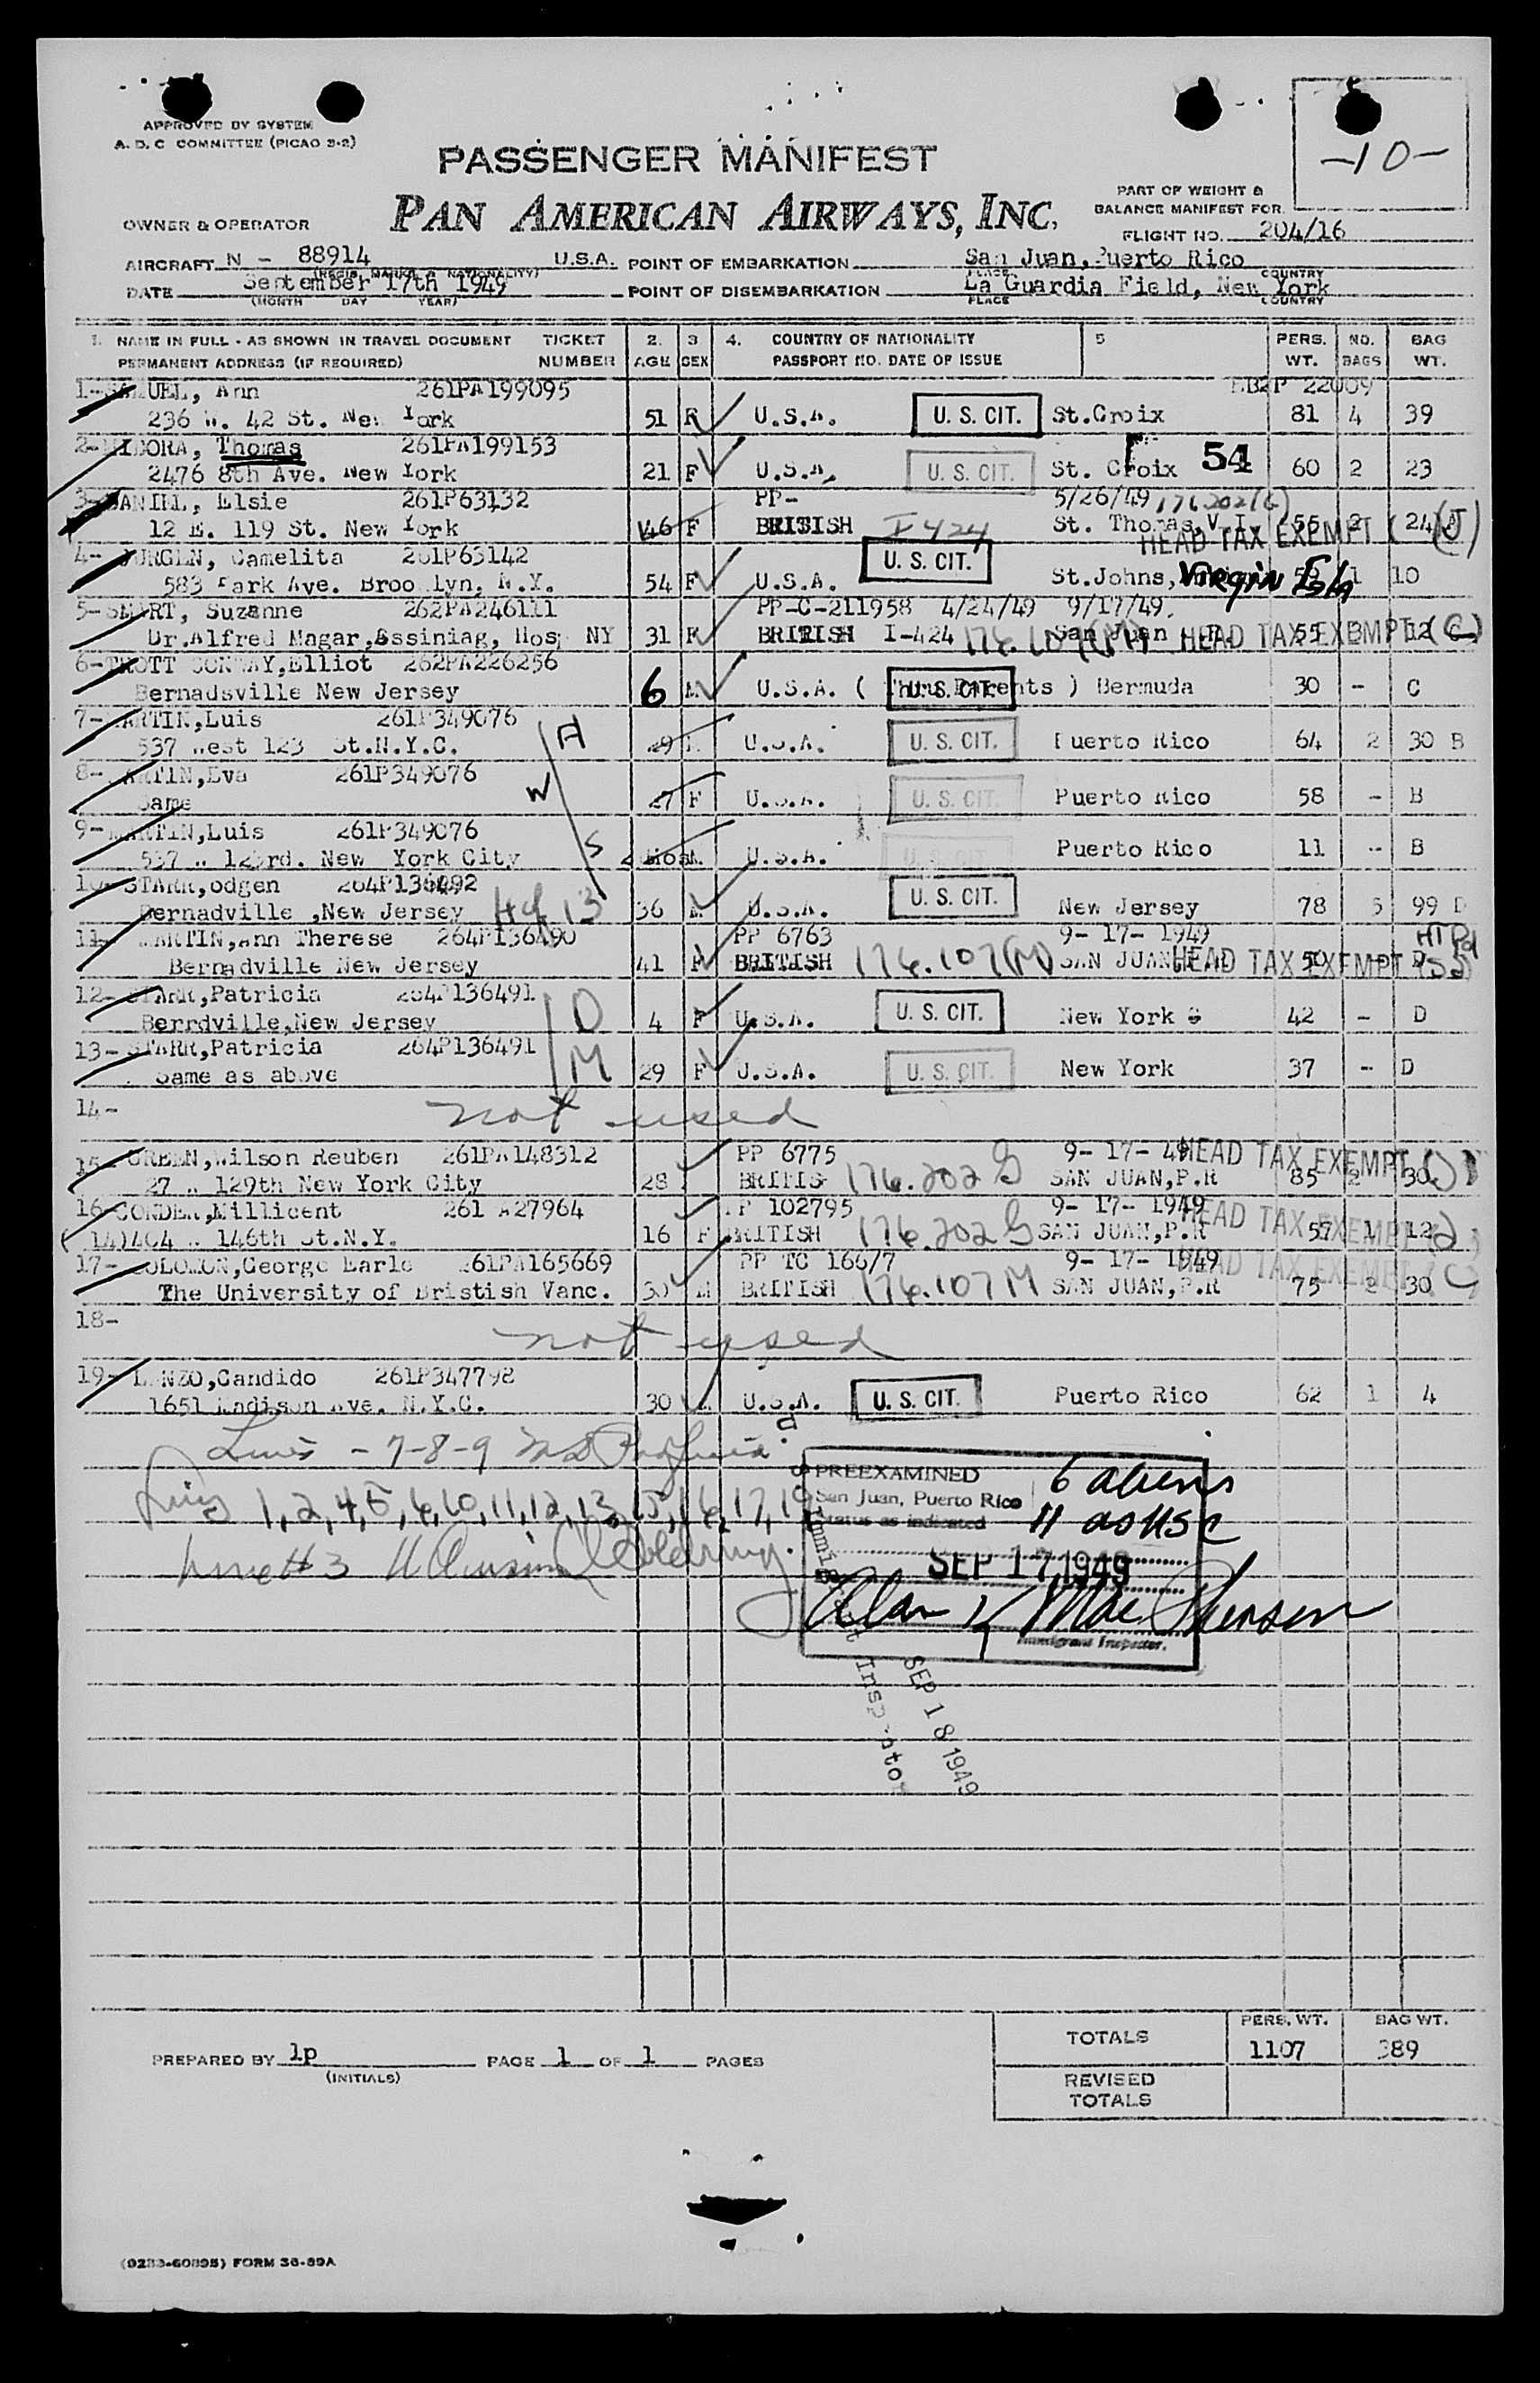 APPROVED BY SYSTEM
A. D. C COMMITTEE (PICAO 2-2)
-10-
PASSENGER MANIFEST
PAN AMERICAN AIRWAYS, INC.
PART OF WEIGHT &
BALANCE MANIFEST FOR
OWNER & OPERATOR
FLIGHT NO. 204/16
AIRCRAFT N - 88914 U.S.A. POINT OF EMBARKATION San Juan, Puerto Rico
(REGIS. MARKS & NATIONALITY) PLACE COUNTRY
DATE September 17th 1949 POINT OF DISEMBARKATION La Guardia Field, New York
(MONTH DAY YEAR) PLACE COUNTRY
1. NAME IN FULL - AS SHOWN IN TRAVEL DOCUMENT TICKET 2. 3 4. COUNTRY OF NATIONALITY 5 PERS. NO. BAG
PERMANENT ADDRESS (IF REQUIRED) NUMBER AGE SEX PASSPORT NO. DATE OF ISSUE WT. BAGS WT.
1- SAMUEL, Ann 261PA199095 22009
236 W. 42 St. New York 51 F U.S.A. U. S. CIT. St.Croix 81 4 39
2- Thomas 261PA199153
2476 8th Ave. New York 21 F U.S.A. U. S. CIT. St. Croix 54 60 2 23
3- DANIEL, Elsie 261P63132 PP- 5/26/49 176.202(G)
12 E. 119 St. New York 46 F BRITISH I-424 St. Thomas, V.I. 55 2 24 HEAD TAX EXEMPT (J)
4- JURGEN, Camelita 261P63142
583 Park Ave. Brooklyn, N.Y. 54 F U.S.A. U. S. CIT. St.Johns, Virgin Isls 1 10
5- SMART, Suzanne 262PA246111 PP-C-211958 4/24/49 9/17/49.
Dr.Alfred Magar, Assiniag, Hos, NY 31 F BRITISH I-424 176.107(M) San Juan HEAD TAX EXEMPT 55 12 C
6- TROTT CONWAY, Elliot 262PA226256
Bernadsville New Jersey 6 M U.S.A. ( Thru Parents ) U. S. CIT. Bermuda 30 - C
7- MARTIN,Luis 261P349076
537 West 123 St.N.Y.C. 29 U.S.A. U. S. CIT. Puerto Rico 64 2 30 B
8- MARTIN,Eva 261P349076
Same 27 F U.S.A. U. S. CIT. Puerto Rico 58 - B
9- MARTIN,Luis 261P349076
537 W. 123rd. New York City 2 Mos M. U.S.A. U. S. CIT. Puerto Rico 11 -- B
10- STARR,odgen 264P136492
Bernadville ,New Jersey 36 M U.S.A. U. S. CIT. New Jersey 78 5 99 D
11- MARTIN,Ann Therese 264P136490 PP 6763 9- 17- 1949
Bernadville New Jersey 41 F BRITISH 176.107(M) SAN JUAN HEAD TAX EXEMPT 50 - D
12- STARR,Patricia 264P136491
Berrdville,New Jersey 4 F U.S.A. U. S. CIT. New York 42 - D
13- STARR,Patricia 264P136491
Same as above 29 F U.S.A. U. S. CIT. New York 37 - D
14- not used
15- GREEN,Wilson Reuben 261PA148312 PP 6775 9- 17- 49 HEAD TAX EXEMPT
27 W 129th New York City 28 BRITIS 176.202 G SAN JUAN,P.R 85 2 30
16- CONDER,Millicent 261 A27964 PP 102795 9- 17- 1949 HEAD TAX EXEMPT
404 W 146th St.N.Y. 16 F BRITISH 176.202 G SAN JUAN,P.R 57 1 12
17- SOLOMON,George Earle 261PA165669 PP TC 166/7 9- 17- 1949 HEAD TAX EXEMPT
The University of Bristish Vanc. 30 M BRITISH 176.107 M SAN JUAN,P.R 75 2 30
18- not used
19- Candido 261P347798
1651 Madison Ave. N.Y.C. 30 U.S.A. U. S. CIT. Puerto Rico 62 1 4
Lines - 7-8-9
Lines 1,2,4,5,6,10,11,12,13,15,16,17,19
Line #3
PREEXAMINED
San Juan, Puerto Rico
Status as indicated
6 aliens
11 as USC
SEP 17 1949
Immigrant Inspector.
SEP 18 1949
TOTALS PERS. WT. 1107 BAG WT. 389
REVISED TOTALS
PREPARED BY lp PAGE 1 OF 1 PAGES
(INITIALS)
FORM 36-89A